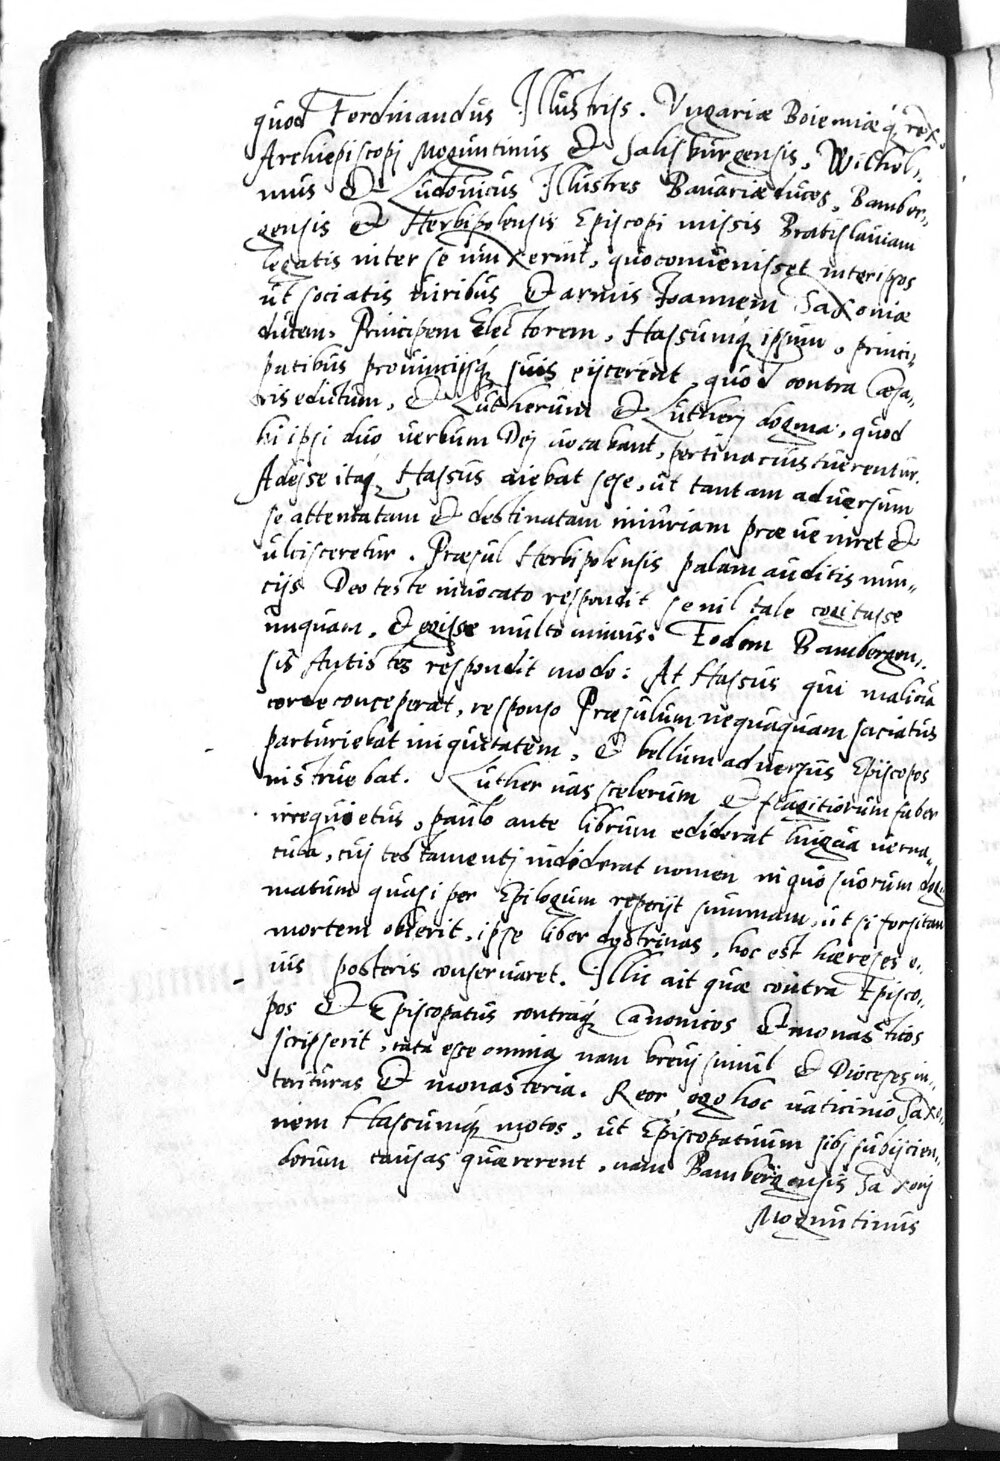 quod Ferdinandus Illustriss. Vngariæ Boiemiæq́ rex.
Archiepiscopi Moguntinus et Salisburgensis, Wilhel,,
mus et Ludouicus Illustres Bauariæ duces, Bamber,,
gensis et Herbipolensis Episcopi missis Bratislauiam
legatis inter se iunxerint, quo conuenisset inter ipsos
ut sociatis uiribus et armis Joannem Saxoniæ
ducem, Principem Electorem, Hassumq́ ipsum, princi,,
patibus prouincijsq́ suis eijcerent, quod contra Cæsa,,
ris edictum, et Lutherum et Lutherj dogma, quod
hi ipsi duo uerbum Dej uocabant, pertinacius tuerentur.
Adesse itaq́ Hassus aiebat sese, ut tantam aduersum
se attentatam et destinatam iniuriam præueniret et
ulcisceretur. Præsul Herbipolensis palam auditis nun,,
cijs Deo teste inuocato respondit se nil tale cogitasse
unquam, et egisse multo minus: Eodem Bambergen,,
sis Antistes respondit modo: At Hassus qui maliciã
corde conceperat, responso Præsulum nequaquam saciatus
parturiebat iniquitatem, et bellum aduersus Episcopos
instruebat. Luther uas scelerum et flagitiorum faber
irrequietus, paulo ante librum ediderat lingua uerna,,
cula, cuj testamentj indiderat nomen in quo suorum dog,,
matum quasi per Epilogum reperijt summam, ut si forsitan
mortem obierit, ipse liber doctrinas, hoc est hæreses e,,
ius posteris conseruaret. Illic ait quæ contra Episco,,
pos et Episcopatus contraq́ Canonicos et monasticos
scripserit, rata esse omnia, nam breuj simul et Dioceses in,,
terituras et monasteria. Reor ego hoc uaticinio Saxo,,
nem Hassumq́ motos, ut Episcopatuum sibj subijcien,,
dorum causas quærerent, nam Bambergensis Saxonj
Moguntinus